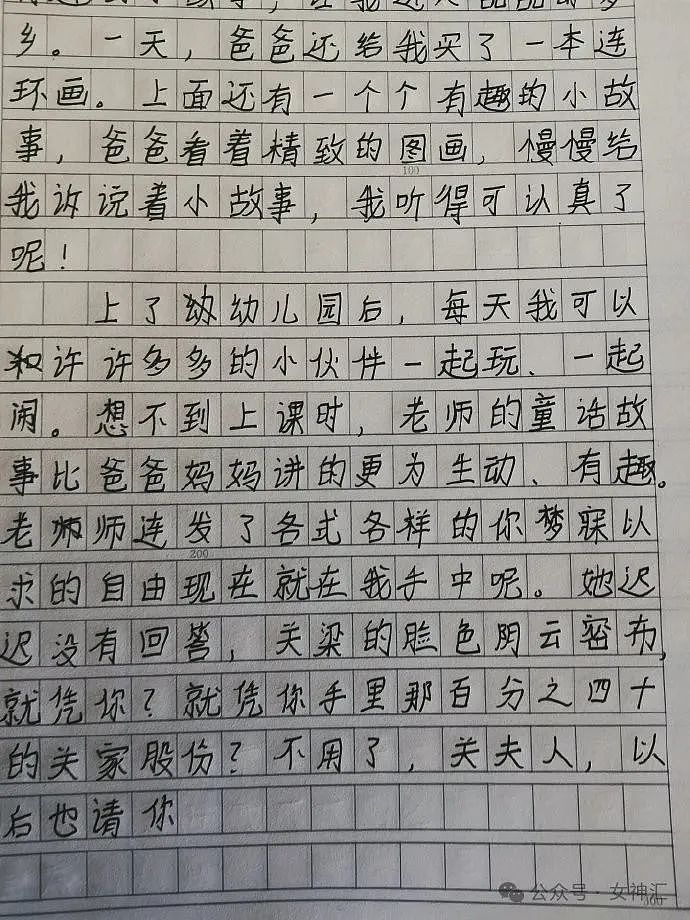 乡。一天，爸爸还给我买了一本连
环画。上面还有一个个有趣的小故
事，爸爸看着精致的图画，慢慢给
100
我诉说着小故事，我听得可认真了
呢！
上了幼幼儿园后，每天我可以
和许许多多的小伙件一起玩、一起
闹。想不到上课时，老师的童话故
事比爸爸妈妈讲的更为生动、有趣。
老师师连发了各式各样的你梦寐以
200
求的自由现在就在我手中呢。她迟
迟没有回答，关梁的脸色阴云密布，
就凭你？就凭你手里那百分之四十
的关家股份？不用了，关夫人，以
后也请你
公众号·女神汇
300